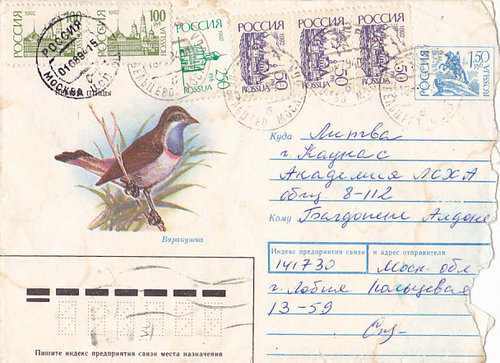 РОССИЯ 1992
100
ROSSIJA
1992 РОССИЯ
100
ROSSIJA
РОССИЯ 1992
50
ROSSIJA
РОССИЯ 1992
50
ROSSIJA
РОССИЯ 1992
50
ROSSIJA
РОССИЯ 1992
50
ROSSIJA
РОССИЯ 1992
1,50
ROSSIJA
РОССИЯ
МОСКВА
птицы
Варакушка
Куда Литва
г. Каунас
Академия ЛСХА
общ 8-112
Кому
Индекс предприятия связи и адрес отправителя
141730 Моск. обл
г. Лобня Кольцевая
13-59
Пишите индекс предприятия связи места назначения